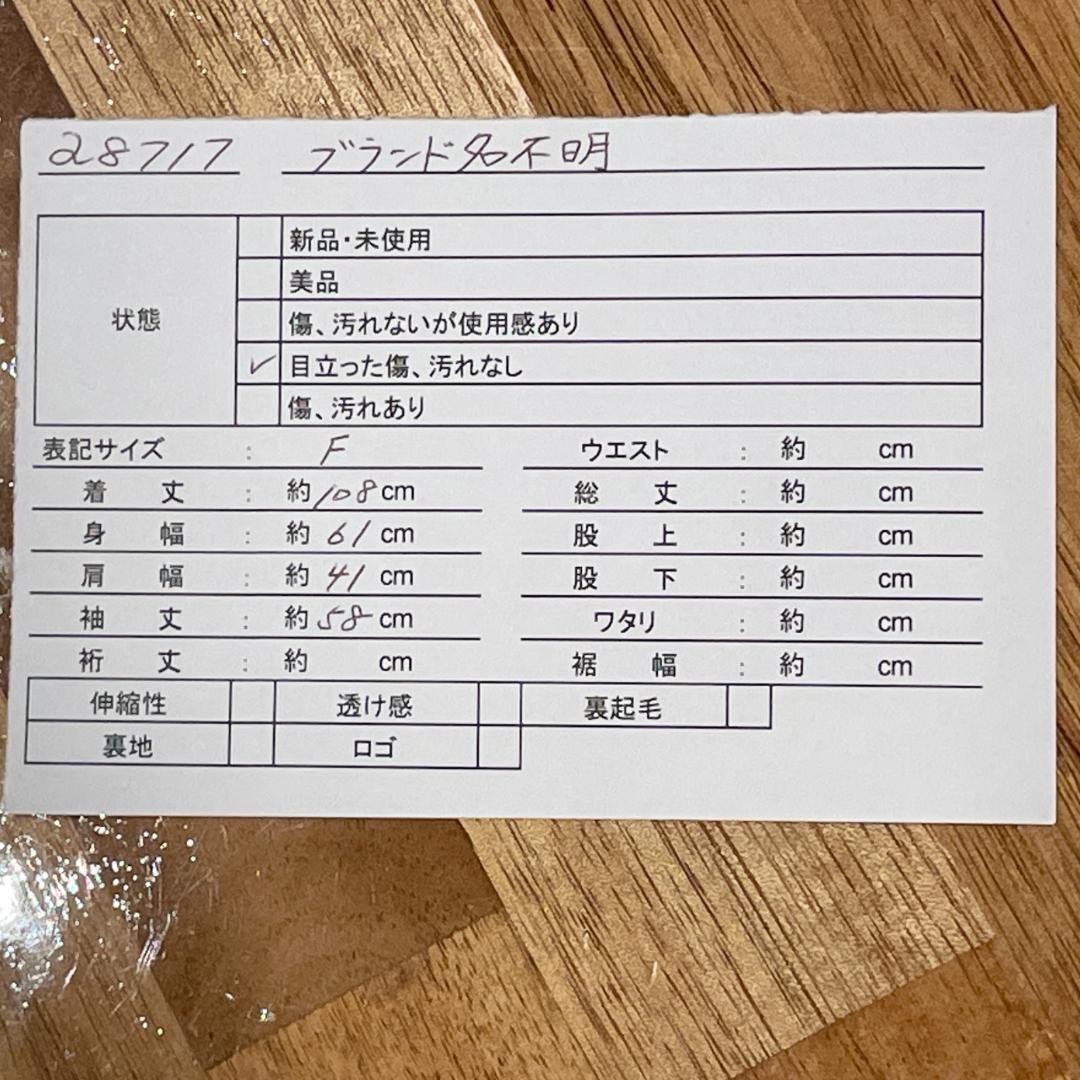 28717 ブランド名不明
状態
新品・未使用
美品
傷、汚れないが使用感あり
✓ 目立った傷、汚れなし
傷、汚れあり
表記サイズ : F ウエスト : 約 cm
着丈 : 約108cm 総丈 : 約 cm
身幅 : 約61cm 股上 : 約 cm
肩幅 : 約41cm 股下 : 約 cm
袖丈 : 約58cm ワタリ : 約 cm
裄丈 : 約 cm 裾幅 : 約 cm
伸縮性 透け感 裏起毛
裏地 ロゴ